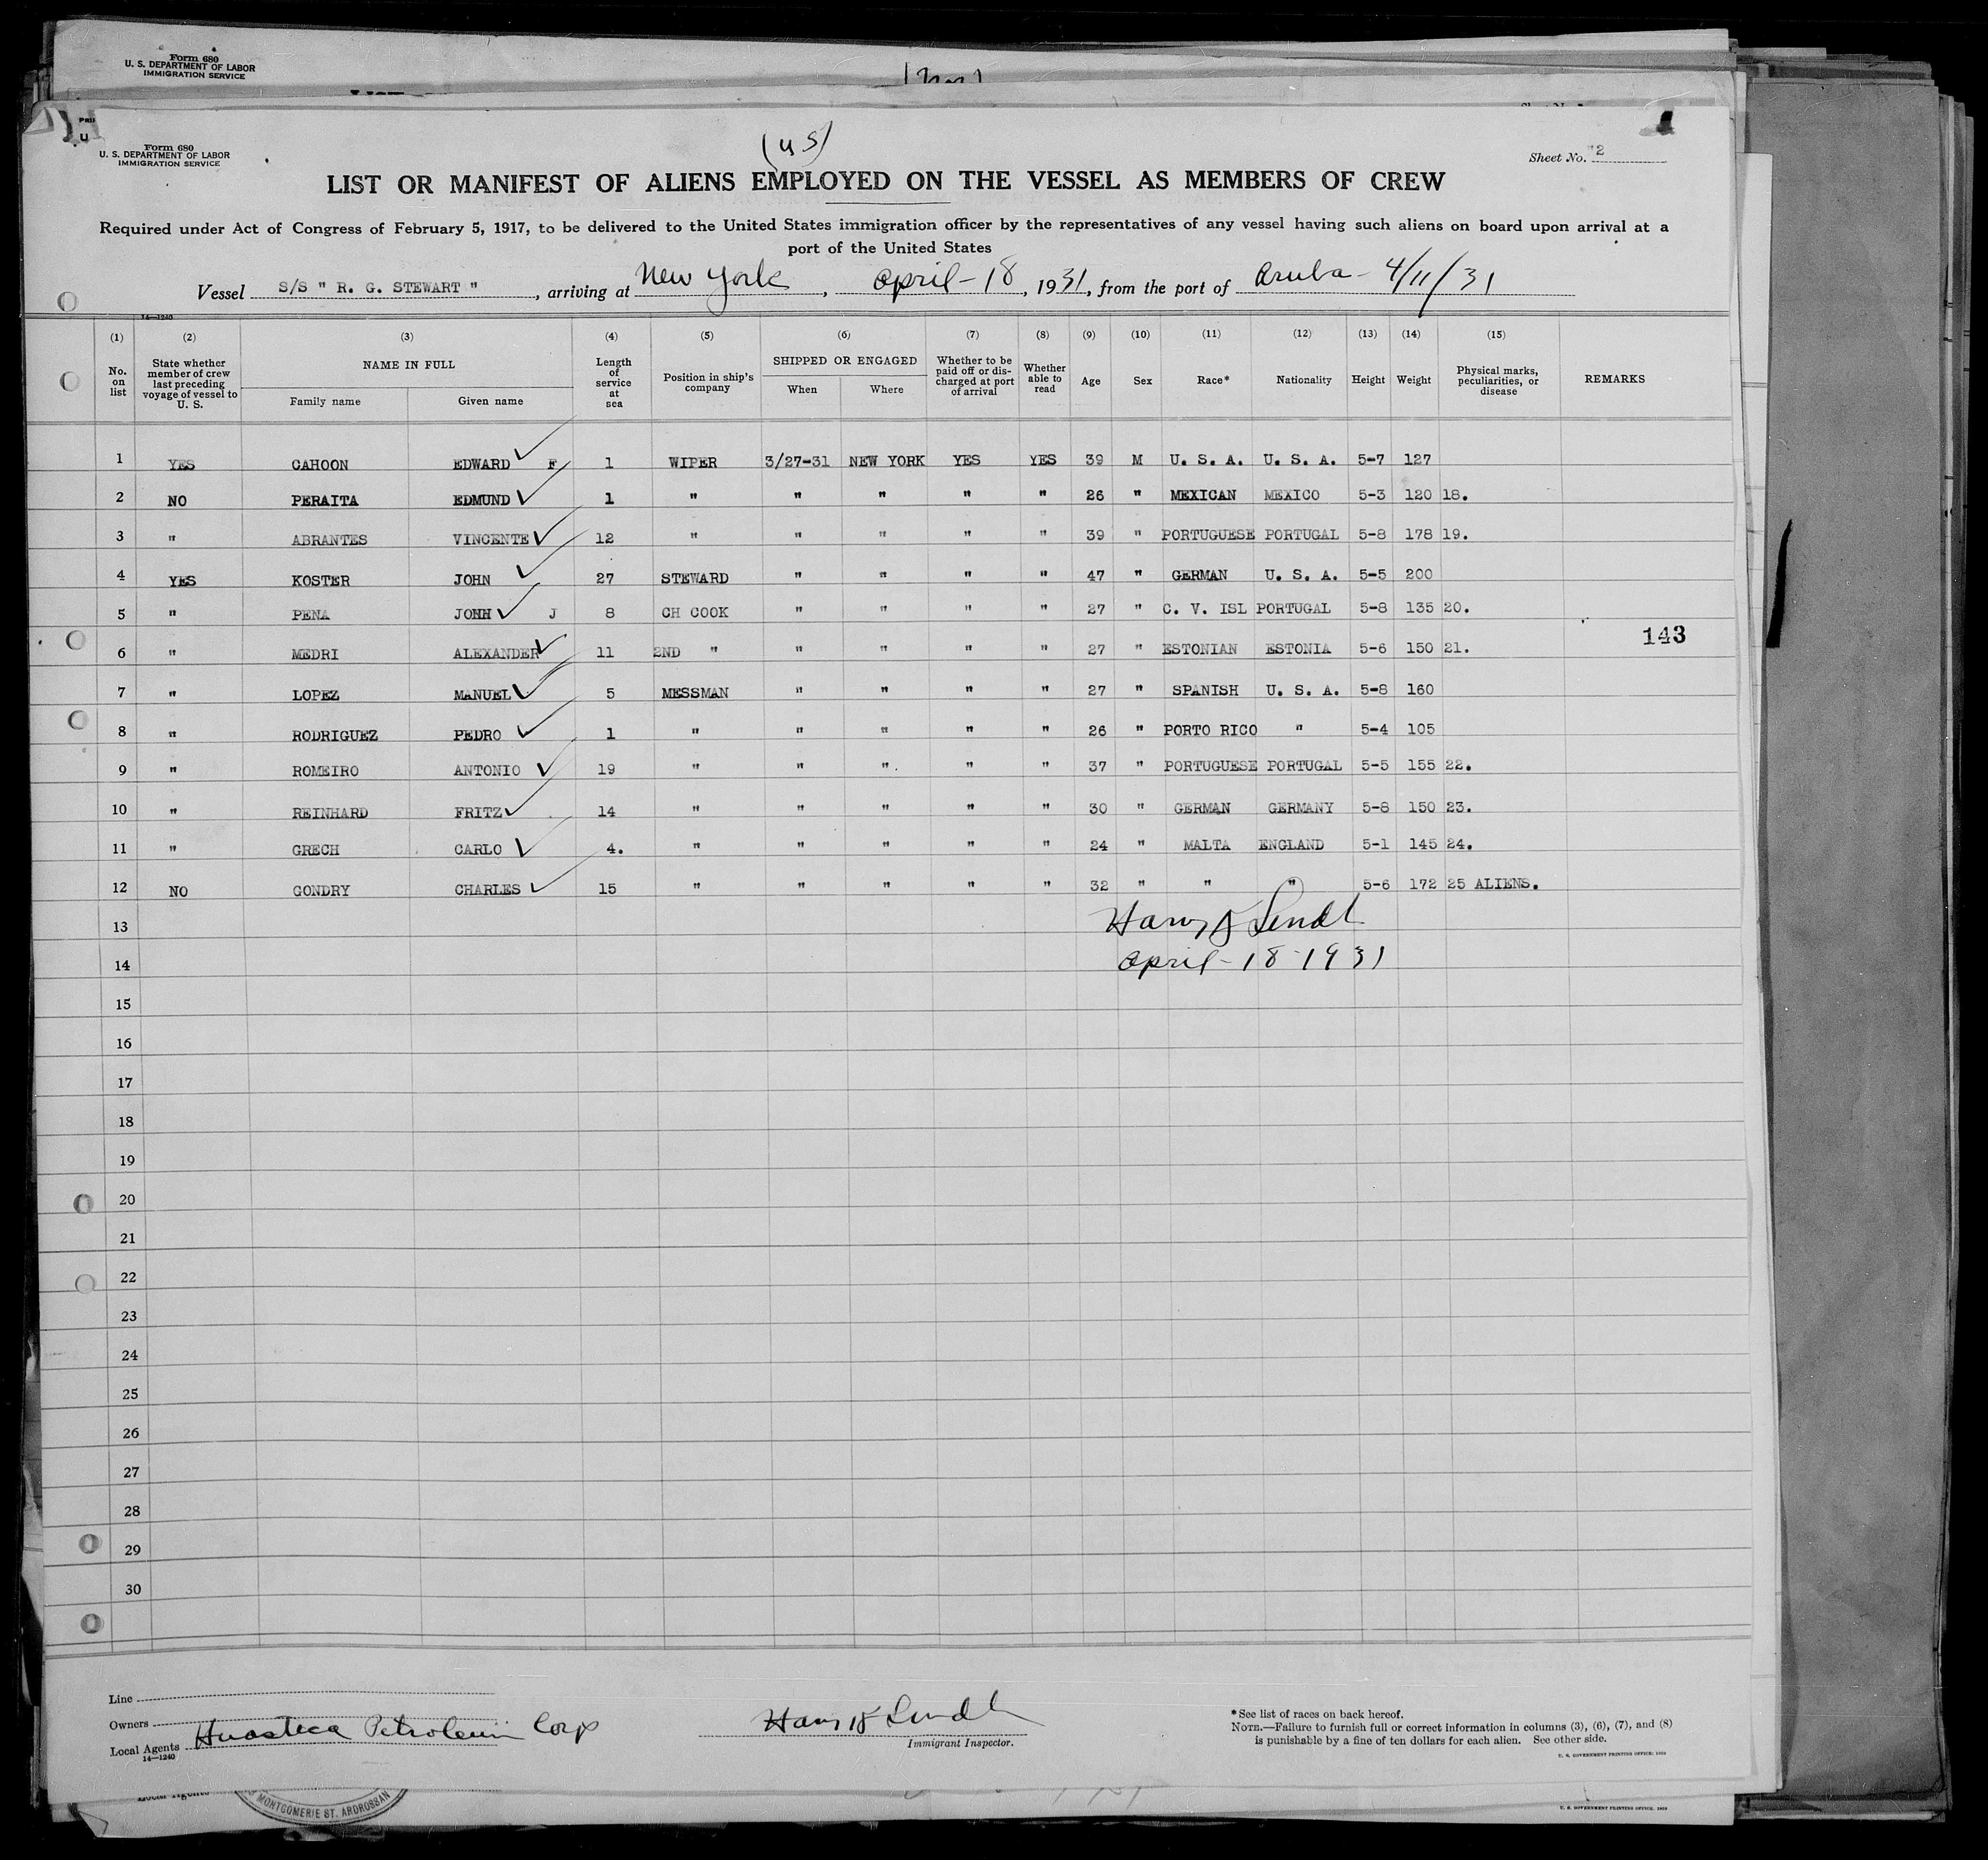 Form 680
U. S. DEPARTMENT OF LABOR
IMMIGRATION SERVICE
Form 680
U. S. DEPARTMENT OF LABOR
IMMIGRATION SERVICE
(US)
Sheet No. 2
LIST OR MANIFEST OF ALIENS EMPLOYED ON THE VESSEL AS MEMBERS OF CREW
Required under Act of Congress of February 5, 1917, to be delivered to the United States immigration officer by the representatives of any vessel having such aliens on board upon arrival at a
port of the United States
Vessel S/S " R. G. STEWART ", arriving at New York, April-18, 1931, from the port of Aruba- 4/11/31
14—1240
(1) (2) (3) (4) (5) (6) (7) (8) (9) (10) (11) (12) (13) (14) (15)
No. on list State whether member of crew last preceding voyage of vessel to U. S. NAME IN FULL Length of service at sea Position in ship's company SHIPPED OR ENGAGED Whether to be paid off or discharged at port of arrival Whether able to read Age Sex Race* Nationality Height Weight Physical marks, peculiarities, or disease REMARKS
Family name Given name When Where
1 YES CAHOON EDWARD F 1 WIPER 3/27-31 NEW YORK YES YES 39 M U. S. A. U. S. A. 5-7 127
2 NO PERAITA EDMUND 1 " " " " " 26 " MEXICAN MEXICO 5-3 120 18.
3 " ABRANTES VINCENTE 12 " " " " " 39 " PORTUGUESE PORTUGAL 5-8 178 19.
4 YES KOSTER JOHN 27 STEWARD " " " " 47 " GERMAN U. S. A. 5-5 200
5 " PENA JOHN J 8 CH COOK " " " " 27 " C. V. ISL PORTUGAL 5-8 135 20.
143
6 " MEDRI ALEXANDER 11 2ND " " " " " 27 " ESTONIAN ESTONIA 5-6 150 21.
7 " LOPEZ MANUEL 5 MESSMAN " " " " 27 " SPANISH U. S. A. 5-8 160
8 " RODRIGUEZ PEDRO 1 " " " " " 26 " PORTO RICO " 5-4 105
9 " ROMEIRO ANTONIO 19 " " " " " 37 " PORTUGUESE PORTUGAL 5-5 155 22.
10 " REINHARD FRITZ 14 " " " " " 30 " GERMAN GERMANY 5-8 150 23.
11 " GRECH CARLO 4. " " " " " 24 " MALTA ENGLAND 5-1 145 24.
12 NO GONDRY CHARLES 15 " " " " " 32 " " " 5-6 172 25 ALIENS.
13
14 April-18-1931
15
16
17
18
19
20
21
22
23
24
25
26
27
28
29
30
Line
Owners
Local Agents Huasteca Petroleum Corp
14—1240
Immigrant Inspector.
*See list of races on back hereof.
NOTE.—Failure to furnish full or correct information in columns (3), (6), (7), and (8)
is punishable by a fine of ten dollars for each alien. See other side.
MONTGOMERIE ST. ARDROSSAN